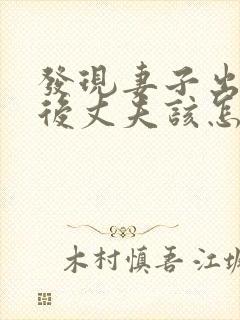 發現妻子出
後丈夫該怎
木村慎吾 江坂